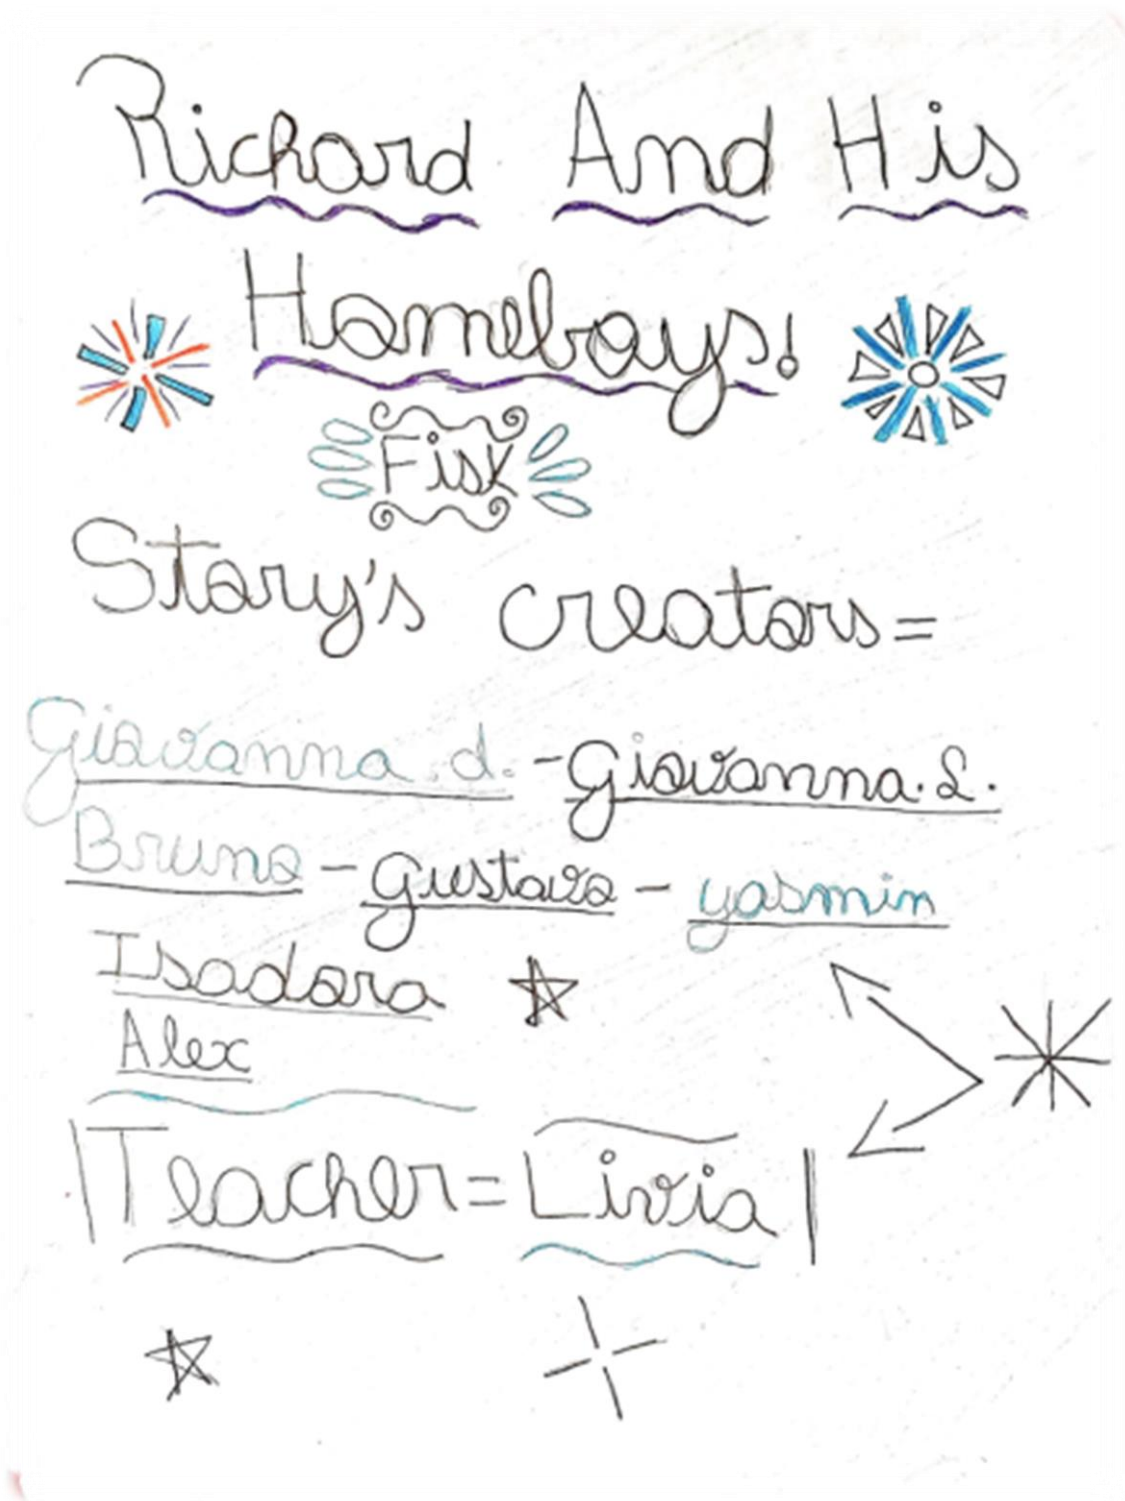 Richard And His
Homeboys!
Fisk
Story's creators=
Giovanna.d. - Giovanna.L.
Bruno - Gustavo - yasmin
Isadora
Alex
Teacher=Livia